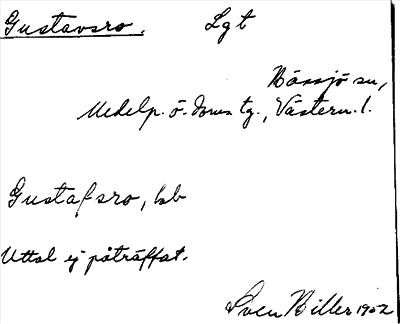 Gustavsro. Lgt
Nässjö sn,
Medelp. ö. doms tg., Västern. l.
Gustafsro, lsb
Uttal ej påträffat.
Sven Biller 1952